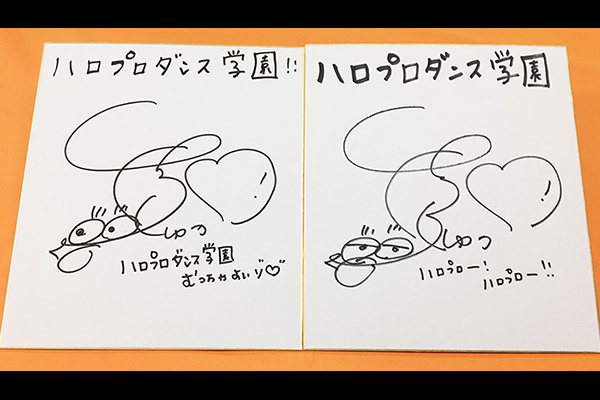 ハロプロダンス学園!!
しゅつ
ハロプロダンス学園
むっちゃよいゾ♡
ハロプロダンス学園
しゅつ
ハロプロー!
ハロプロー!!